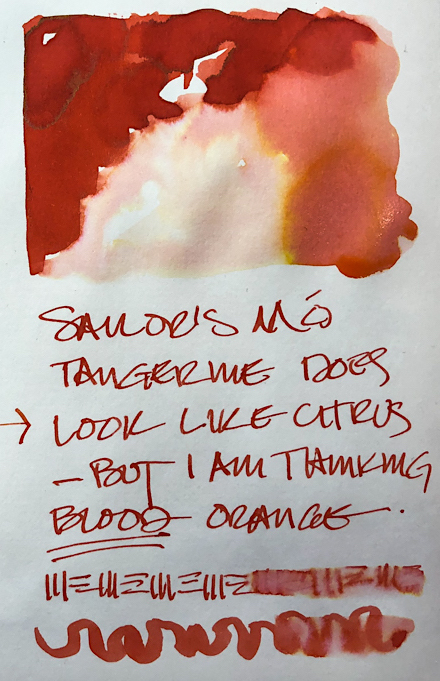 SAILOR'S MÓ
TANGERINE DOES
→ LOOK LIKE CITRUS
— BUT I AM THINKING
BLOOD ORANGE.